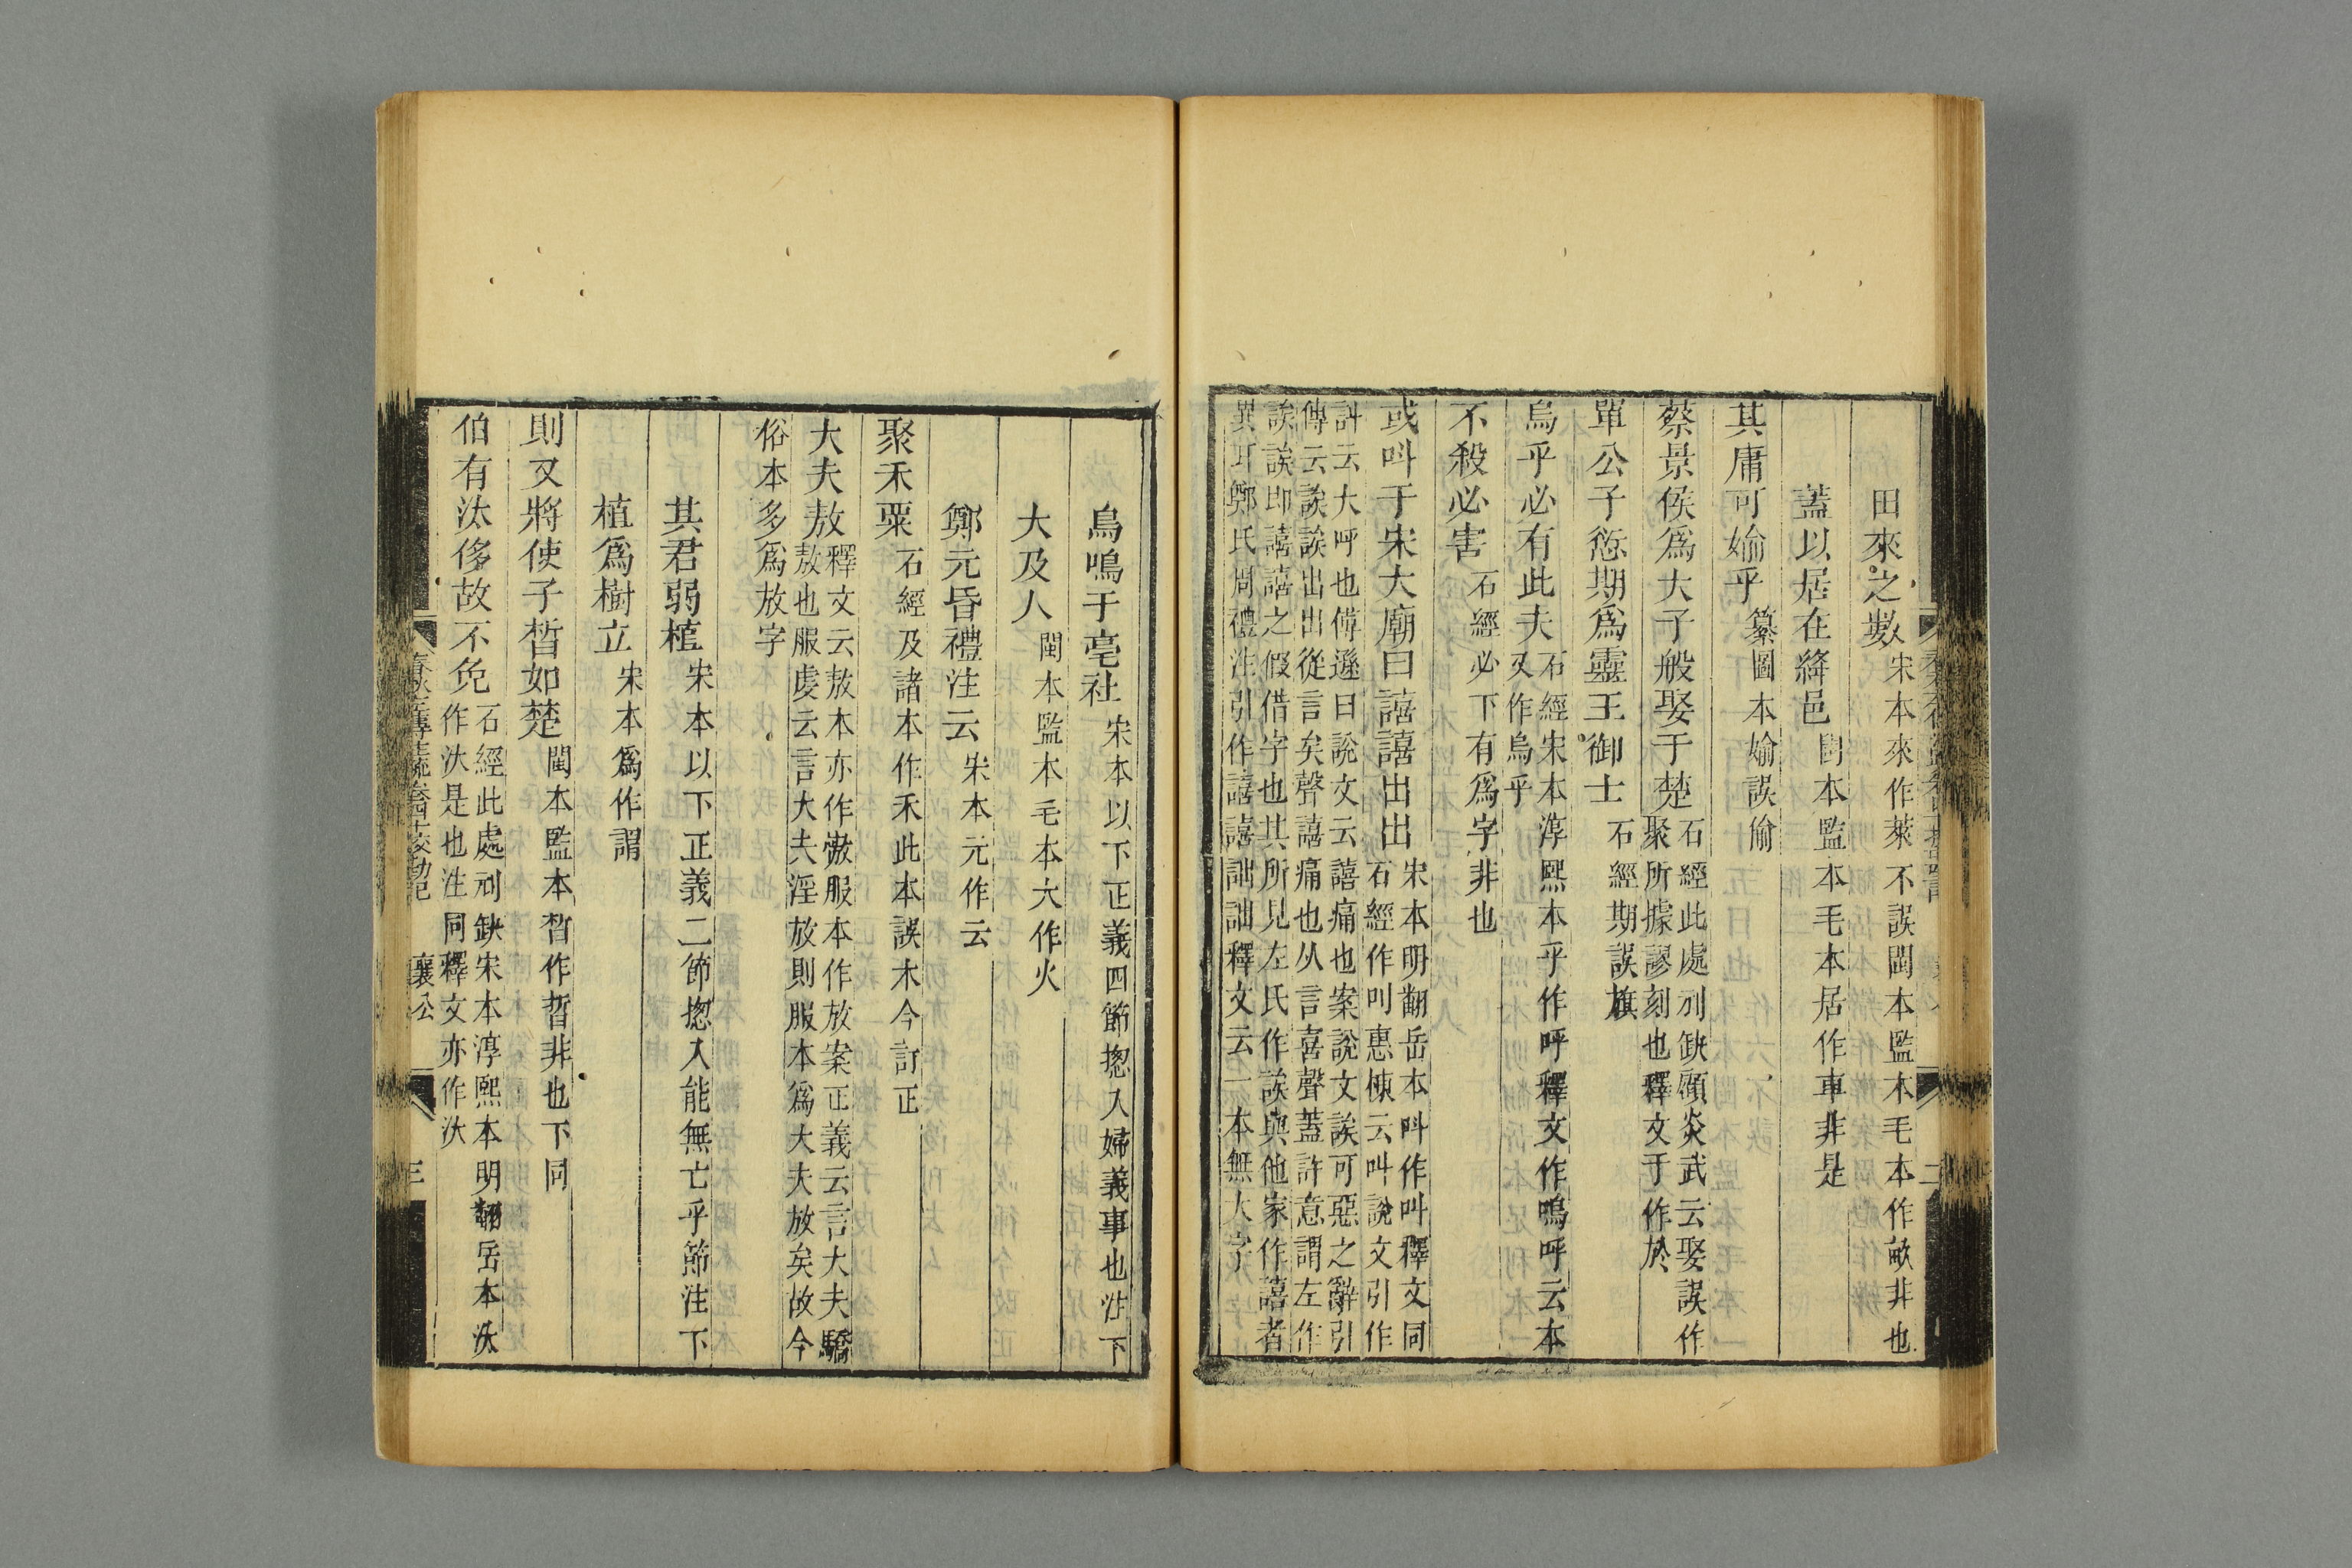 田來之數宋本來作萊不誤閩本監本毛本作畝非也
蓋以居在絳邑閩本監本毛本居作車非是
其庸可媮乎纂圖本媮誤偷
蔡景侯爲大子般娶于楚石經此處刓缺顧炎武云娶誤作
聚所據謬刻也釋文于作於
單公子愆期爲靈王御士石經期誤旗
烏乎必有此夫石經宋本淳熙本乎作呼釋文作嗚呼云本
又作烏乎
不殺必害石經必下有爲字非也
或叫于宋大廟曰譆譆出出宋本明翻岳本叫作叫釋文同
石經作叫惠棟云叫說文引作
訆云大呼也傅遜曰說文云譆痛也案說文誒可惡之辭引
傳云誒誒出出從言矣聲譆痛也从言喜聲蓋許意謂左作
誒誒卽譆譆之假借字也其所見左氏作誒與他家作譆者
異耳鄭氏周禮注引作譆譆詘詘釋文云一本無大字
二
鳥鳴于亳社宋本以下正義四節揔入婦義事也注下
大及人閩本監本毛本大作火
鄭元昏禮注云宋本元作云
聚禾粟石經及諸本作禾此本誤木今訂正
大夫敖釋文云敖本亦作傲服本作放案正義云言大夫驕
敖也服虔云言大夫淫放則服本爲大夫放矣故今
俗本多爲放字
其君弱植宋本以下正義二節揔入能無亡乎節注下
植爲樹立宋本爲作謂
則又將使子晳如楚閩本監本晳作晢非也下同
伯有汰侈故不免石經此處刓缺宋本淳熙本明翻岳本汰
作汏是也注同釋文亦作汏
襄公
三